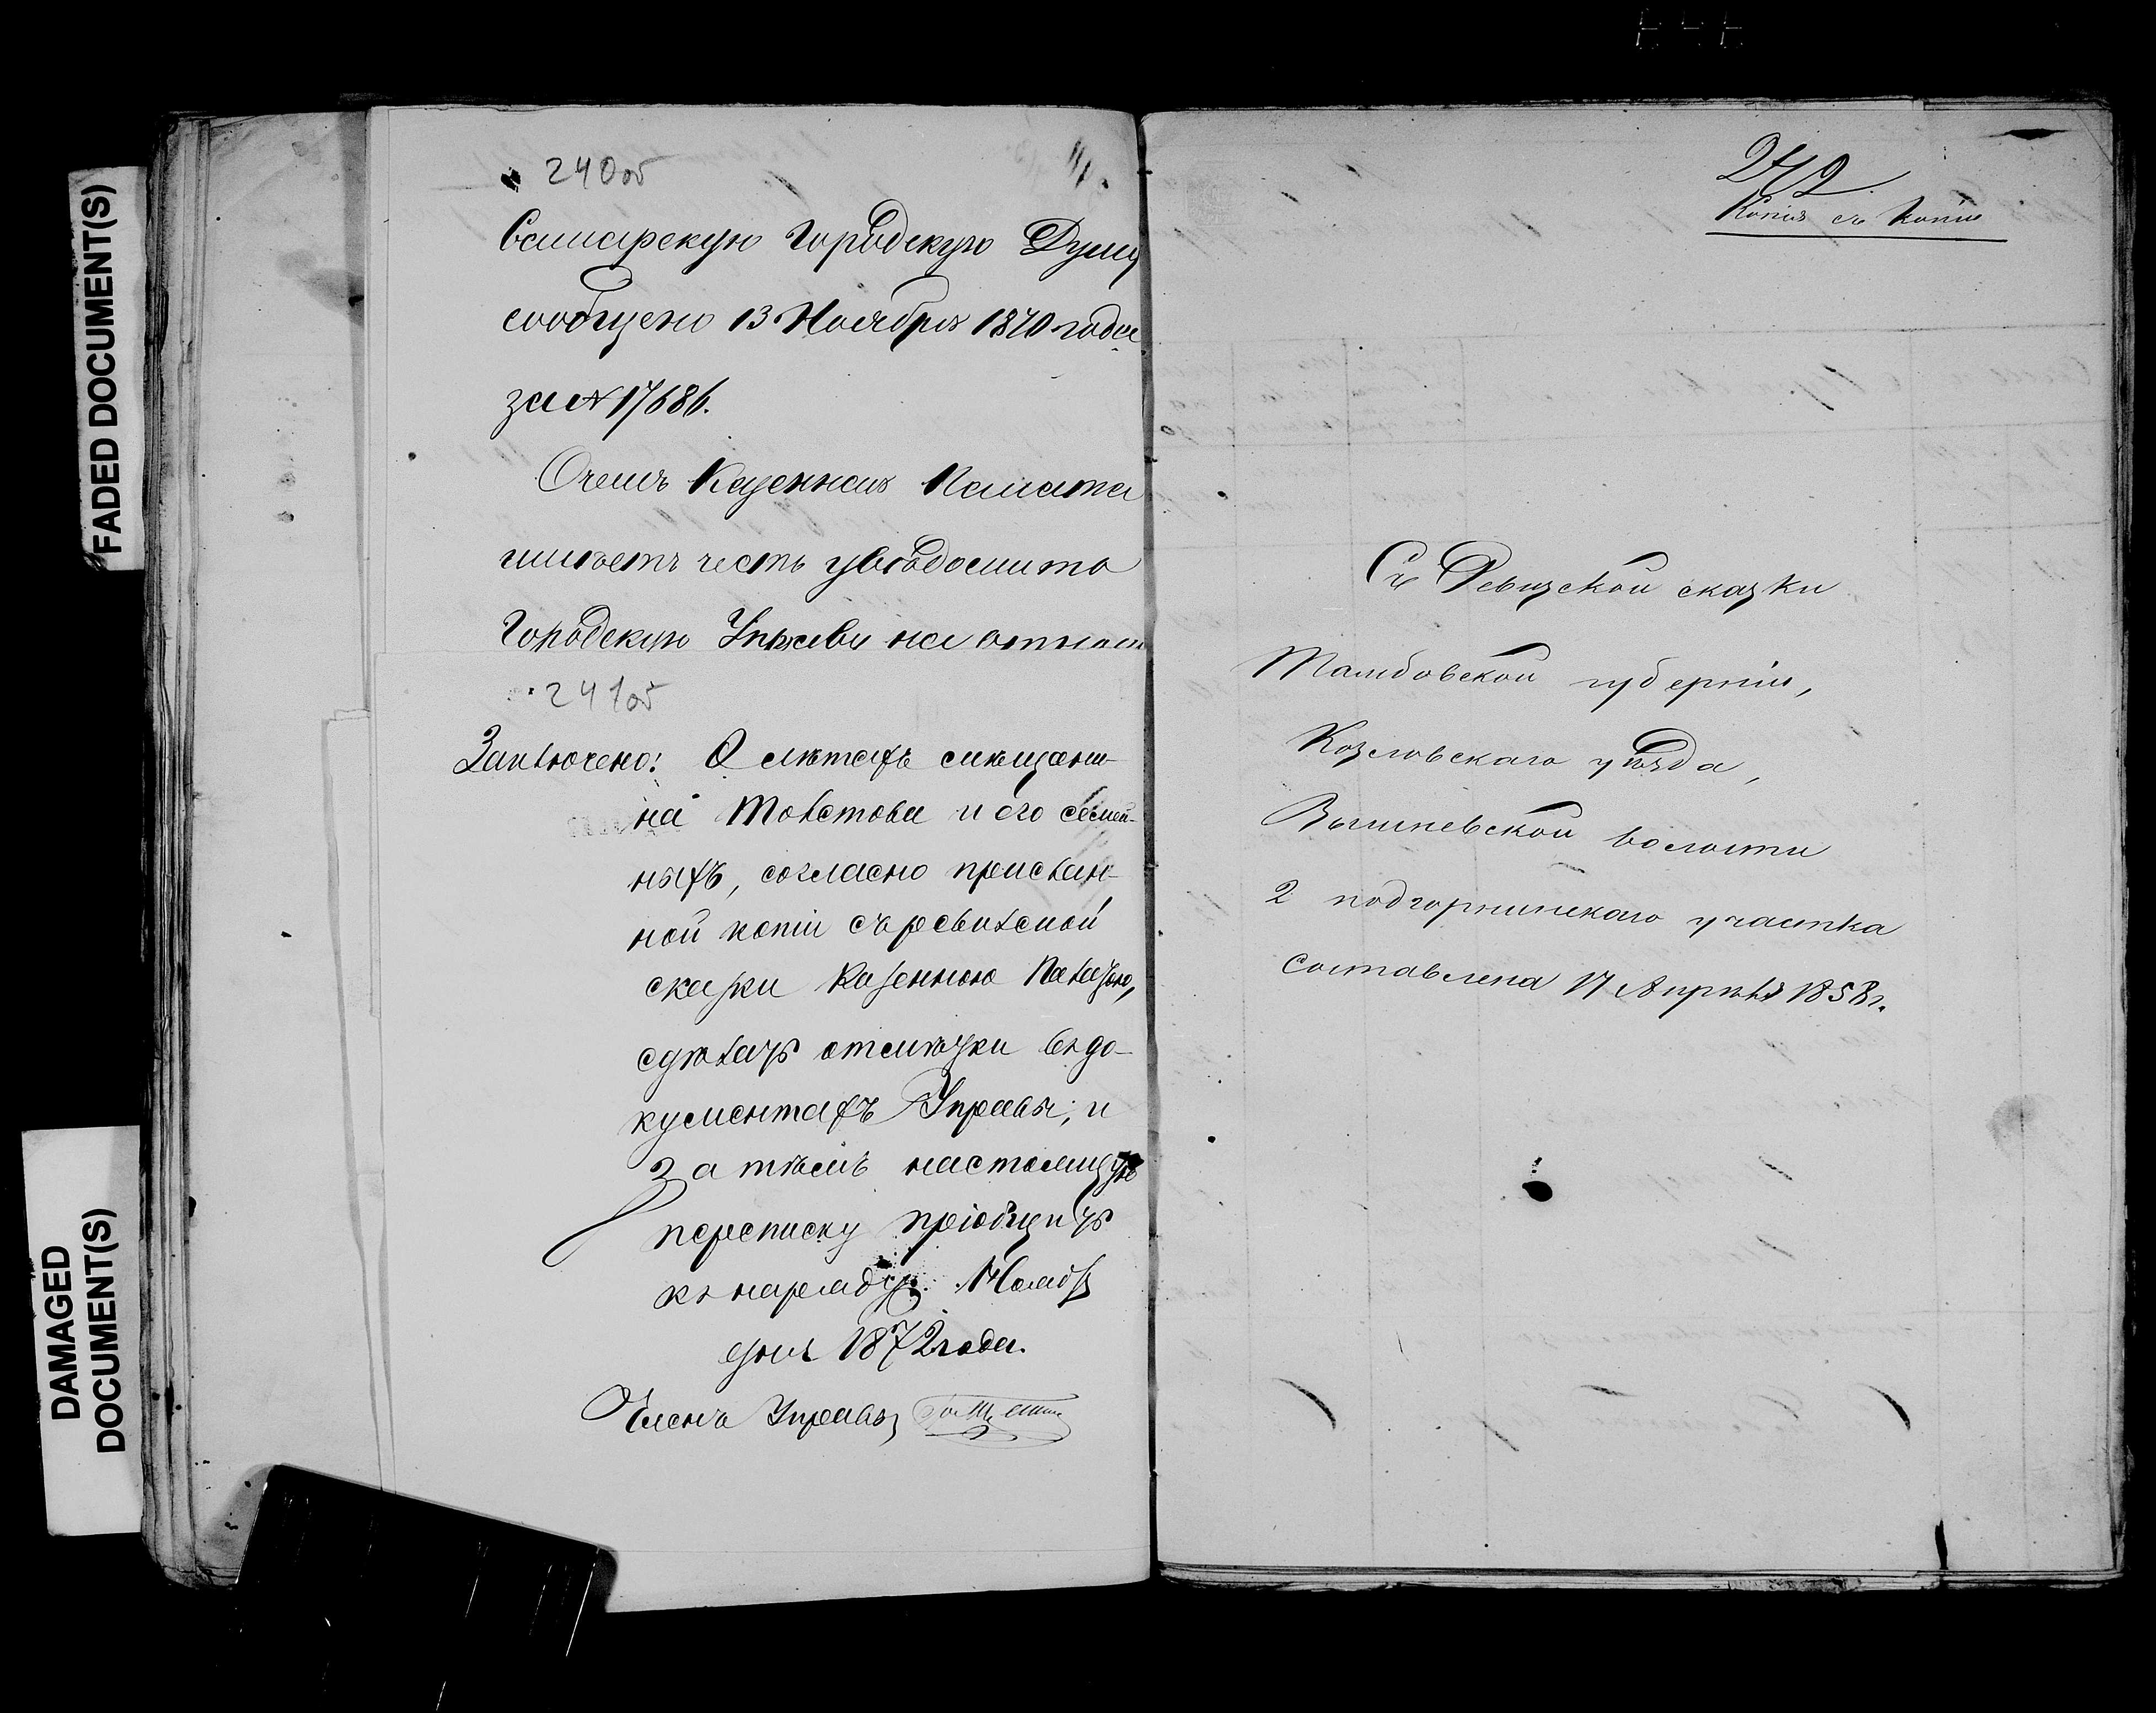 FADED DOCUMENT(S)
DAMAGED
DOCUMENT(S)
240об
Самарскую Городскую Думу
сообщено 13 Ноября 1870 года
за № 17686.
О чемъ Казенная Палата
имѣетъ честь увѣдомить
Городскую Управу на
241об
Заключено: О лѣтахъ мѣщани-
на Толстова и его семей-
ныхъ, согласно прислан-
ной копіи съ ревизской
сказки Казенною Палатою,
сдѣлать отмѣтки въ до-
кументахъ Управы, и
за тѣмъ настоящую
переписку пріобщить
къ наряду. Ноября
дня 1872 года.
Членъ Управы
242
Копія съ Копіи
Съ Ревизской сказки
Тамбовской губерніи,
Козловскаго уѣзда,
волости
2 участка
составлена 17 Апрѣля 1858 г.